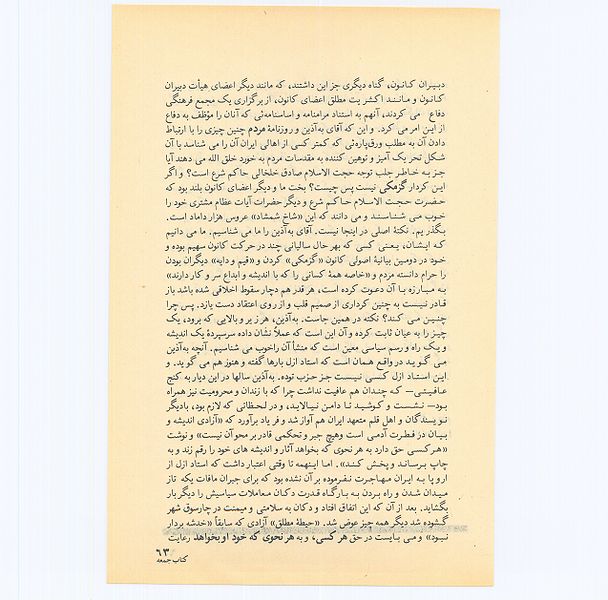 دبیران کانون، گناه دیگری جز این داشتند، که مانند دیگر اعضای هیأت دبیران
کانون و مانند اکثریت مطلق اعضای کانون، از برگزاری یک مجمع فرهنگی
دفاع می کردند، آنهم به استناد مرامنامه و اساسنامه‌ئی که آنان را مؤظف به دفاع
از این امر می کرد. و این که آقای به‌آذین و روزنامهٔ مردم چنین چیزی را با ارتباط
دادن آن به مطلب ورق‌پاره‌ئی که کمتر کسی از اهالی ایران آن را می شناسد با آن
شکل تحریک آمیز و توهین کننده به مقدسات مردم به خورد خلق الله می دهند آیا
جز به خاطر جلب توجه حجت الاسلام صادق خلخالی حاکم شرع است؟ و اگر
این کردار گزمکی نیست پس چیست؟ بخت ما و دیگر اعضای کانون بلند بود که
حضرت حجت الاسلام حاکم شرع و دیگر حضرات آیات عظام مشتری خود را
خوب می شناسند و می دانند که این «شاخ شمشاد» عروس هزار داماد است.
بگذریم. نکتهٔ اصلی در اینجا نیست. آقای به‌آذین را ما می شناسیم. ما می دانیم
که ایشان، یعنی کسی که بهر حال سالیانی چند در حرکت کانون سهیم بوده و
خود در دومین بیانیهٔ اصولی کانون «گزمکی» کردن و «قیم و دایه» دیگران بودن
را حرام دانسته مردم و «خاصه همهٔ کسانی را که با اندیشه و ابداع سر و کار دارند»
به مبارزه با آن دعوت کرده است، هر قدر هم دچار سقوط اخلاقی شده باشد باز
قادر نیست به چنین کرداری از صمیم قلب و از روی اعتقاد دست یازد. پس چرا
چنین می کند؟ نکته در همین جاست. به‌آذین، هر زیر و بالایی که برود، یک
چیز را به عیان ثابت کرده و آن این است که عملاً نشان داده سرسپردهٔ یک اندیشه
و یک راه و رسم سیاسی معین است که منشأ آن را خوب می شناسیم. آنچه به‌آذین
می گوید در واقع همان است که استاد ازل بارها گفته و هنوز هم می گوید. و
این استاد ازل کسی نیست جز حزب توده. به‌آذین سالها در این دیار به کنج
عافیتی— که چندان هم عافیت نداشت چرا که با زندان و محرومیت نیز همراه
بود— نشست و کوشید تا دامن نیالاید، و در لحظاتی که لازم بود، با دیگر
نویسندگان و اهل قلم متعهد ایران هم آواز شد و فریاد برآورد که «آزادی اندیشه و
بیان در فطرت آدمی است و هیچ جبر و تحکمی قادر بر محو آن نیست» و نوشت
«هر کسی حق دارد به هر نحوی که بخواهد آثار و اندیشه های خود را رقم زند و به
چاپ برساند و پخش کند». اما اینهمه تا وقتی اعتبار داشت که استاد ازل از
اروپا به ایران مهاجرت نفرموده بر آن نشده بود که برای جبران مافات یکه تاز
میدان شدن و راه بردن به بارگاه قدرت دکان معاملات سیاسیش را دیگر بار
بگشاید. بعد از آن که این اتفاق افتاد و دکان به سلامتی و میمنت در چارسوق شهر
گشوده شد دیگر همه چیز عوض شد. «حیطهٔ مطلق» آزادی که سابقاً «خدشه بردار
نبود» و می بایست در حق هر کسی، و به هر نحوی که خود او بخواهد رعایت
۶۳
کتاب جمعه